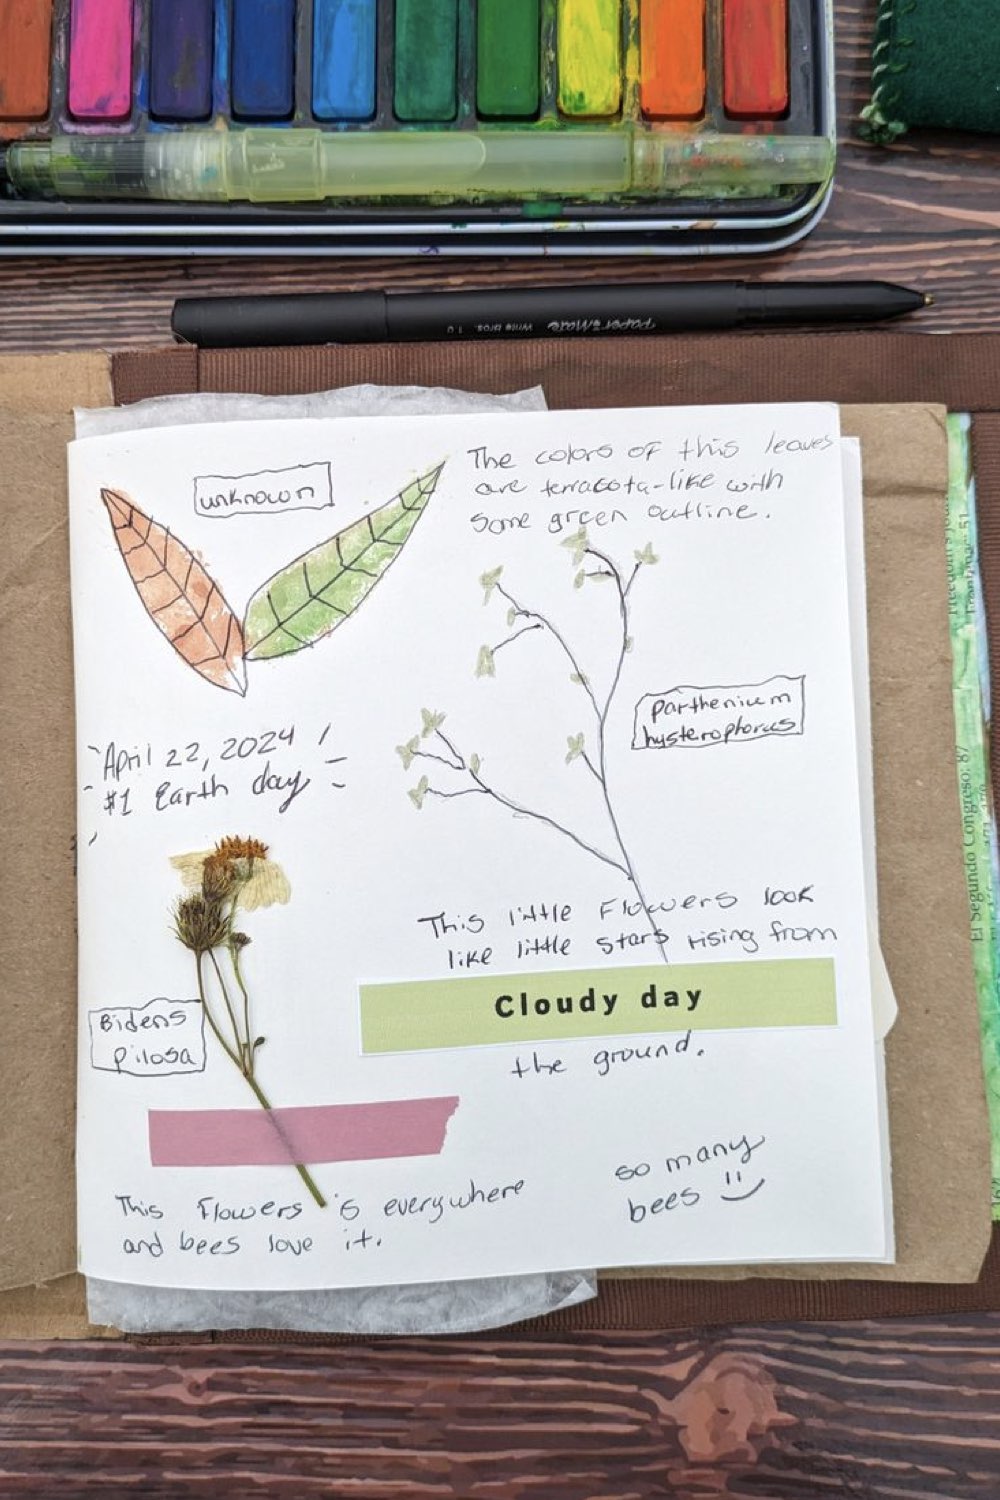 PaperMate
Write Bros. 1.0
unknown
The colors of this leaves
are terracota-like with
some green outline.
Parthenium
hysterophorus
April 22, 2024
#1 Earth day
This little Flowers look
like little stars rising from
Cloudy day
the ground.
Bidens
pilosa
so many
bees
This Flowers is everywhere
and bees love it.
El Segundo Congreso: 87